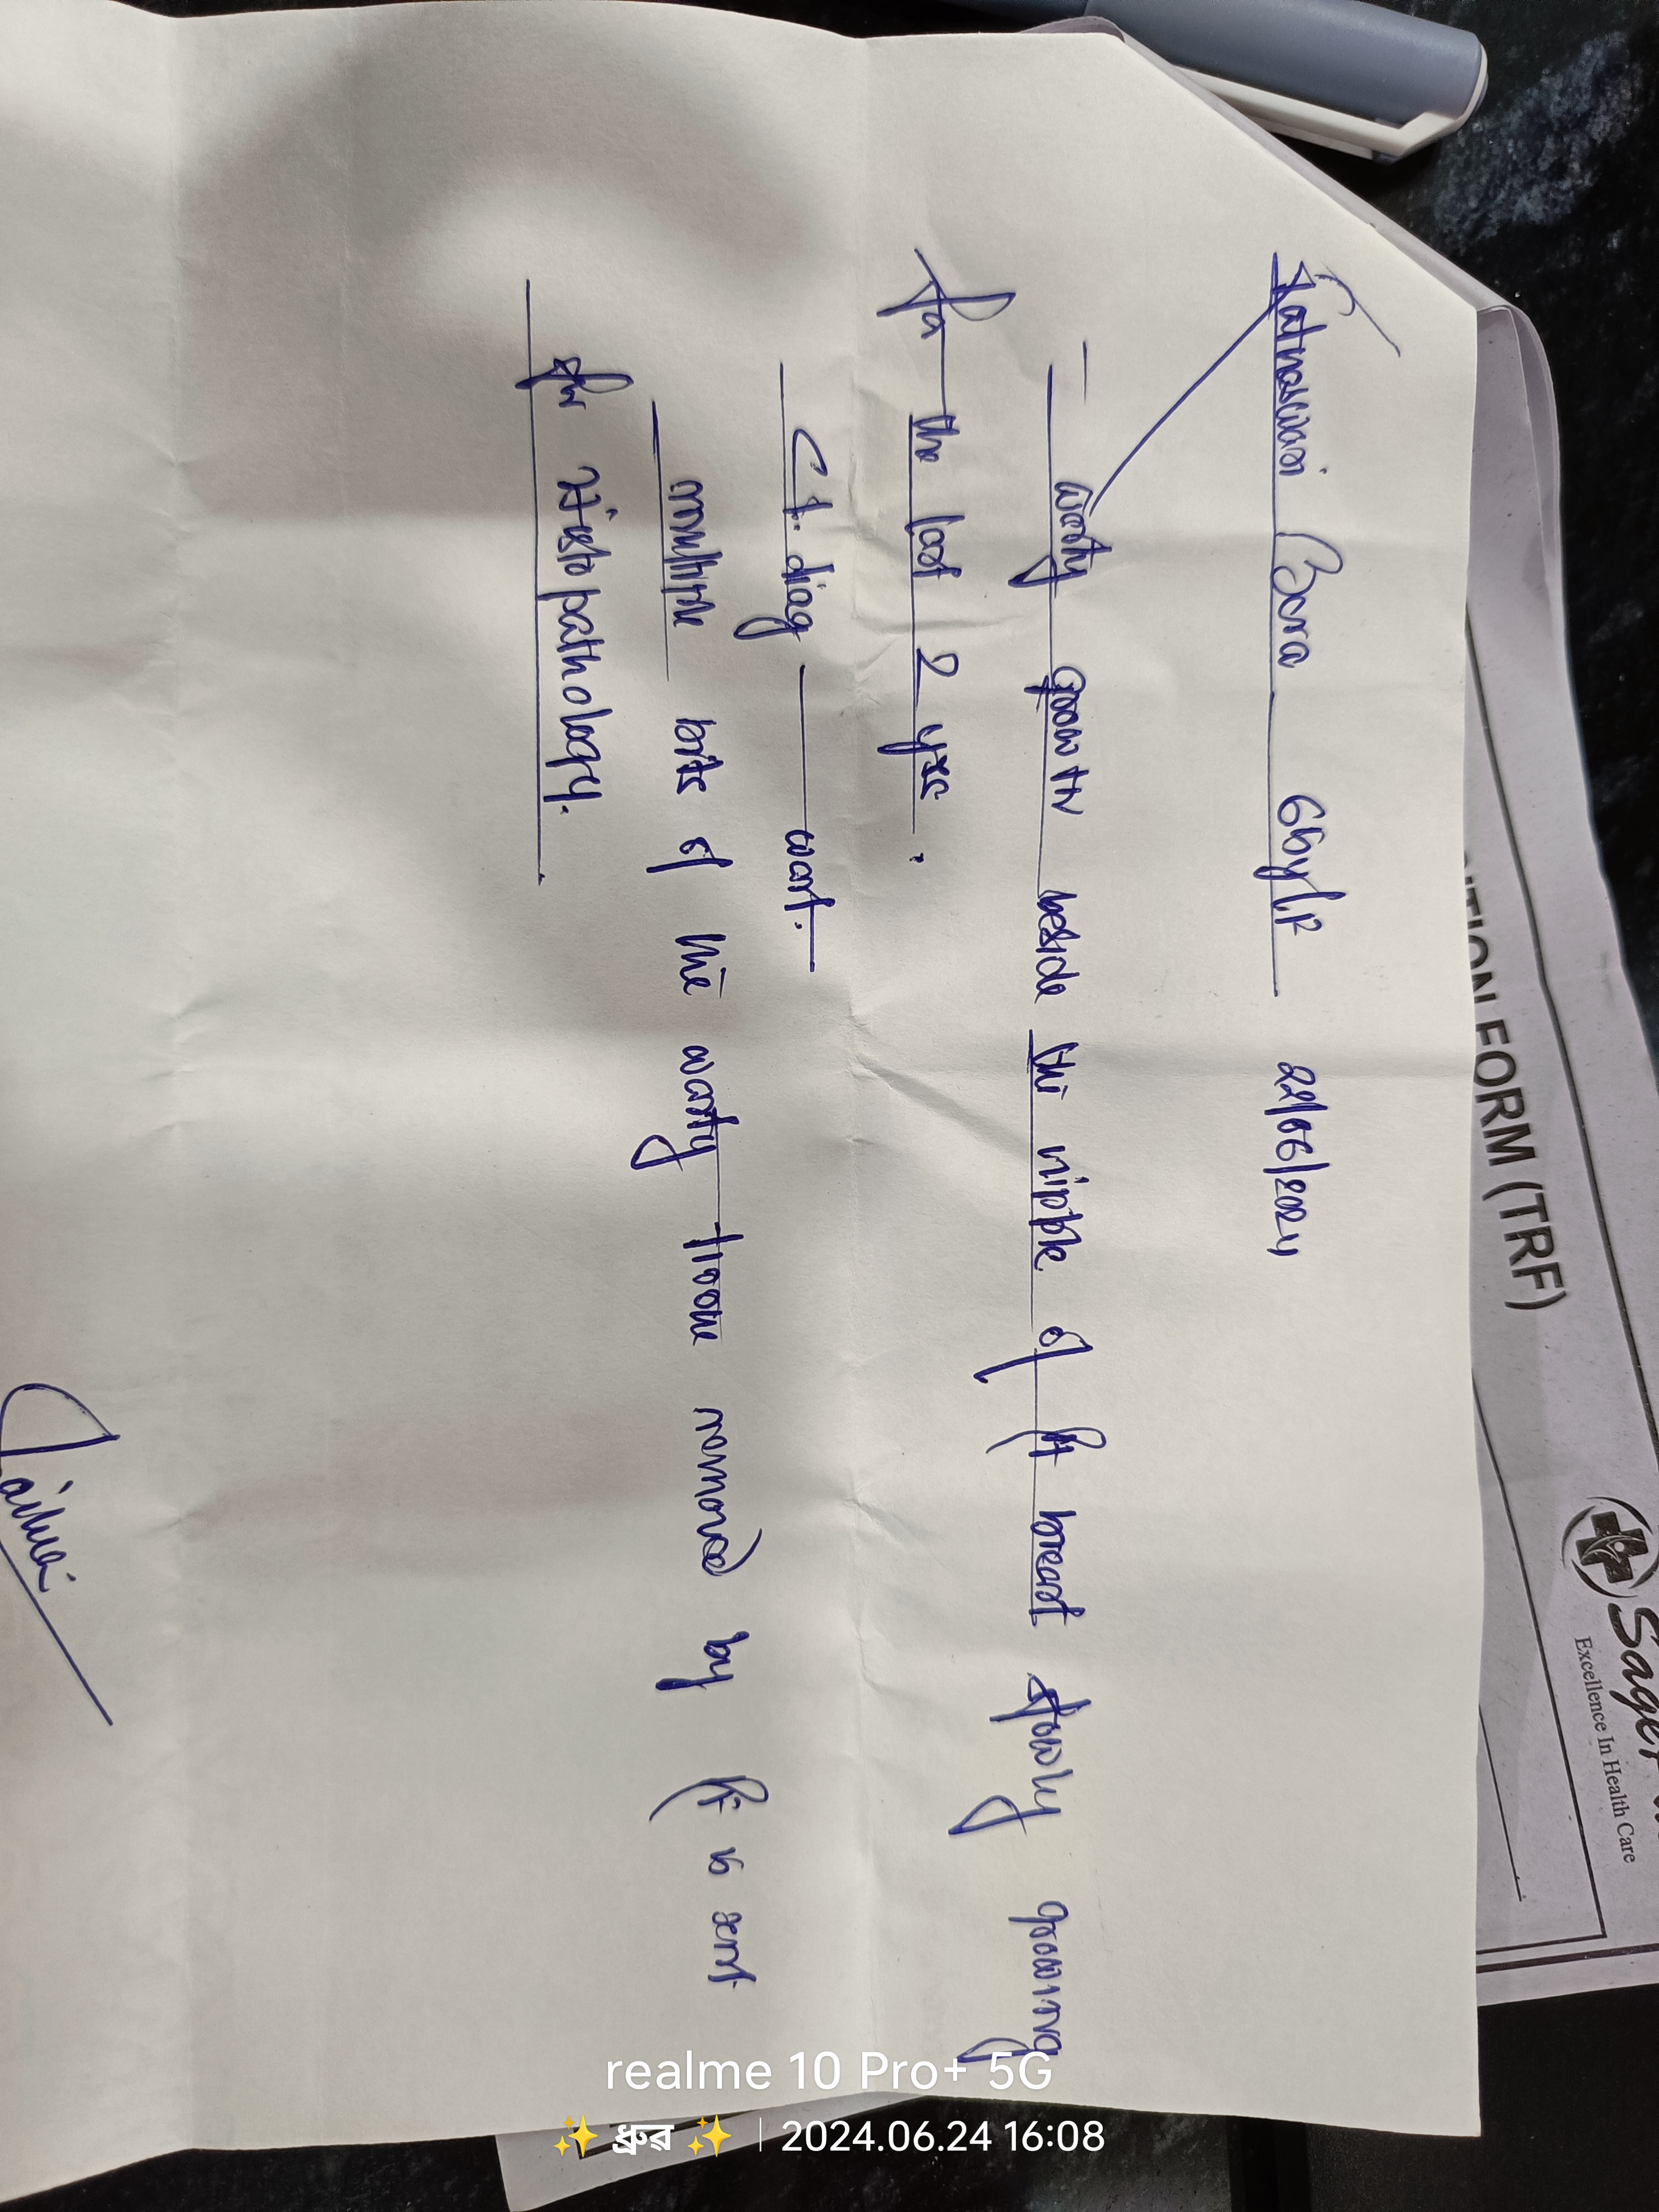 Bora 66y/F 22/06/2024
warty growth beside the nipple of Rt breast slowly growing
for the last 2 yrs.
Cl. diag — wart.
multiple bits of the warty tissue removed by Pt is sent
for Histopathology.
ITION FORM (TRF)
Excellence In Health Care
realme 10 Pro+ 5G
✨ ধ্ৰুৱ ✨ | 2024.06.24 16:08